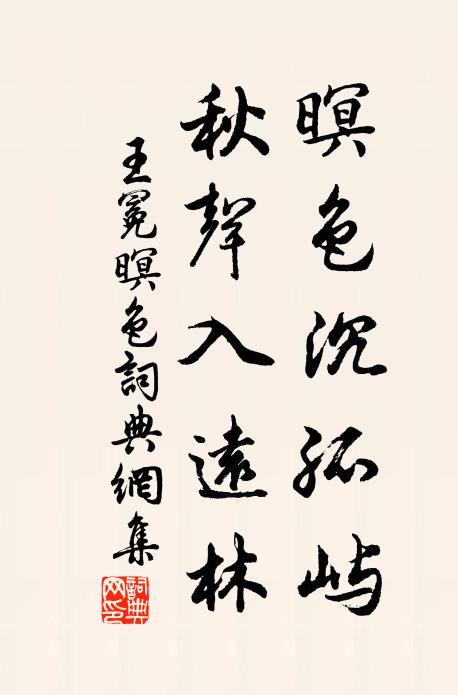 暝色沉孤屿
秋聲入遠林
王冕暝色詞典網集
詞典網印